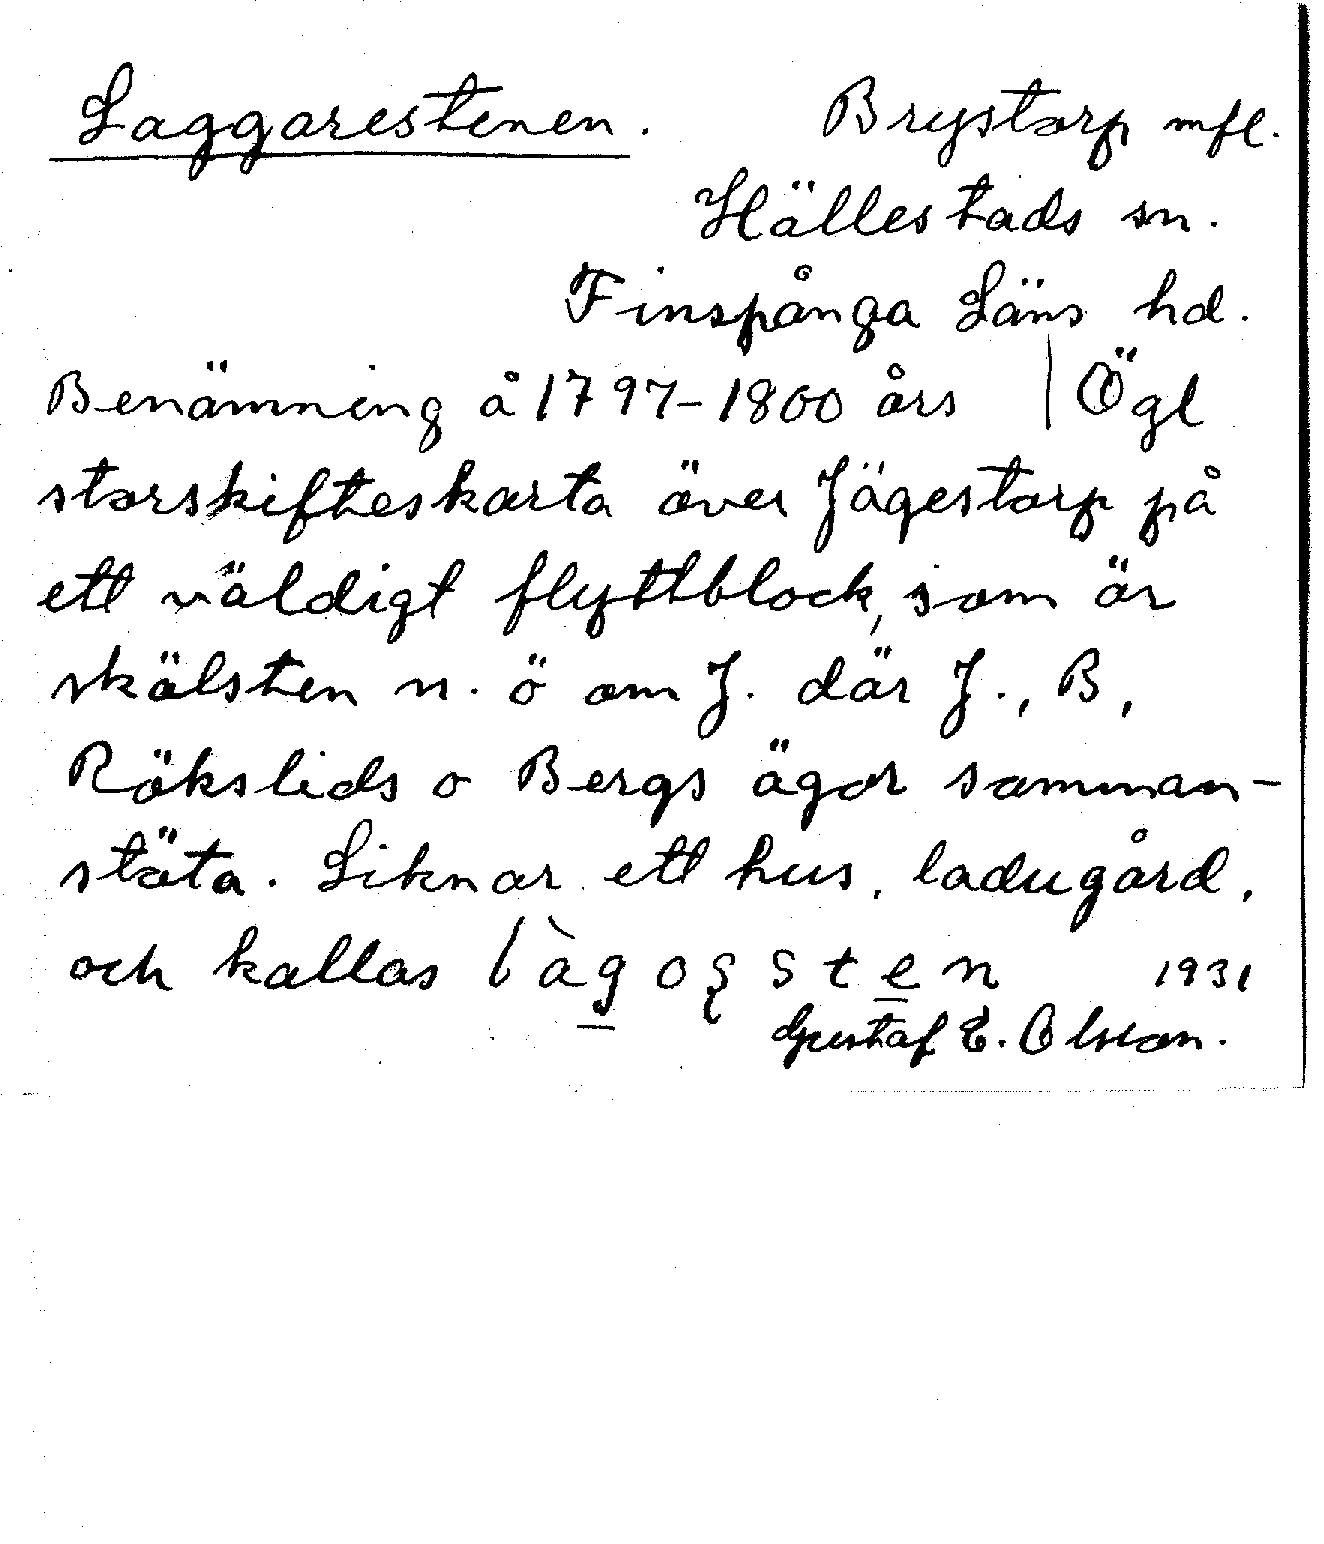 Laggarestenen. Brystorp mfl.
Hällestads sn.
Finspånga Läns hd.
Benämning å 1797-1800 års | Ögl
storskifteskarta över Jägestorp på
ett väldigt flyttblock, som är
skälsten n. ö om J. där J., B,
Rökslids o Bergs ägor samman-
stöta. Liknar ett hus, ladugård,
och kallas 1931
Gustaf E. Olsson.